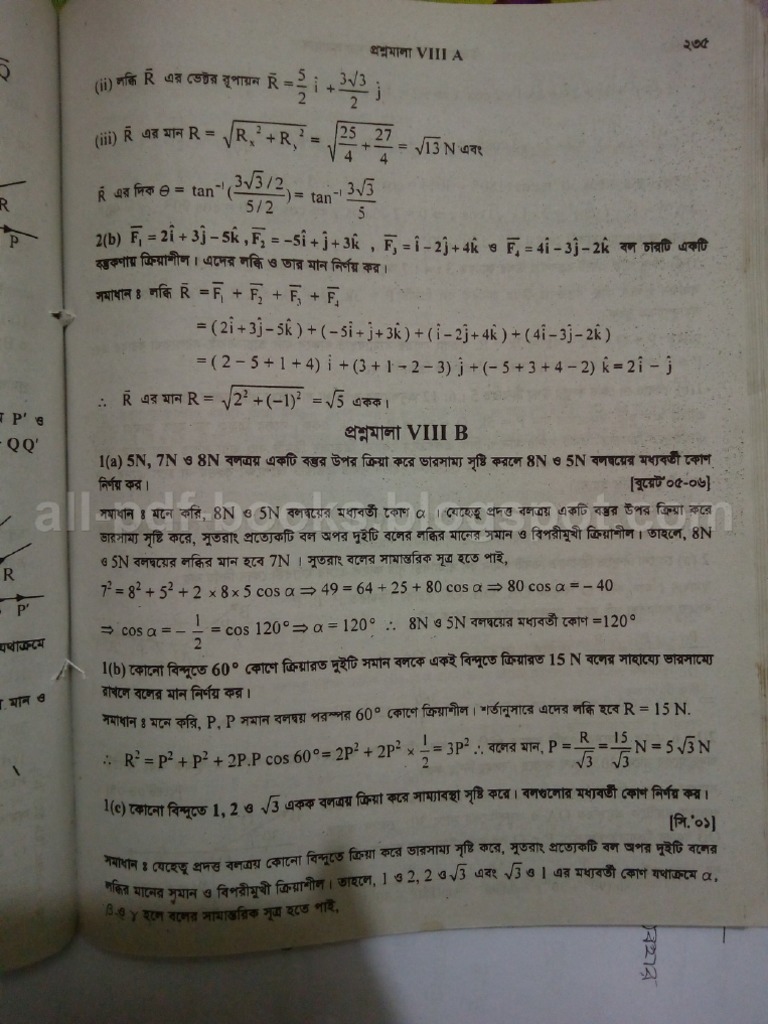 প্রশ্নমালা VIII A
২৩৫
(ii) লব্ধি R̄ এর ভেক্টর রূপায়ন R̄ = 5/2 î + 3√3/2 ĵ
(iii) R̄ এর মান R = √(Rₓ² + Rᵧ²) = √(25/4 + 27/4) = √13 N এবং
R̄ এর দিক θ = tan⁻¹(3√3/2 / 5/2) = tan⁻¹ 3√3/5
2(b) F̄₁ = 2î + 3ĵ – 5k̂ , F̄₂ = –5î + ĵ + 3k̂ , F̄₃ = î – 2ĵ + 4k̂ ও F̄₄ = 4î – 3ĵ – 2k̂ বল চারটি একটি
বস্তুকণায় ক্রিয়াশীল। এদের লব্ধি ও তার মান নির্ণয় কর।
সমাধান ঃ লব্ধি R̄ = F̄₁ + F̄₂ + F̄₃ + F̄₄
= (2î + 3ĵ – 5k̂) + (–5î + ĵ + 3k̂) + (î – 2ĵ + 4k̂) + (4î – 3ĵ – 2k̂)
= (2 – 5 + 1 + 4) î + (3 + 1 – 2 – 3) ĵ + (– 5 + 3 + 4 – 2) k̂ = 2î – ĵ
∴ R̄ এর মান R = √(2² + (–1)²) = √5 একক।
প্রশ্নমালা VIII B
1(a) 5N, 7N ও 8N বলত্রয় একটি বস্তুর উপর ক্রিয়া করে ভারসাম্য সৃষ্টি করলে 8N ও 5N বলদ্বয়ের মধ্যবর্তী কোণ
নির্ণয় কর। [বুয়েট'০৫-০৬]
all-pdf-books.blogspot.com
সমাধান ঃ মনে করি, 8N ও 5N বলদ্বয়ের মধ্যবর্তী কোণ α । যেহেতু প্রদত্ত বলত্রয় একটি বস্তুর উপর ক্রিয়া করে
ভারসাম্য সৃষ্টি করে, সুতরাং প্রত্যেকটি বল অপর দুইটি বলের লব্ধির মানের সমান ও বিপরীতমুখী ক্রিয়াশীল। তাহলে, 8N
ও 5N বলদ্বয়ের লব্ধির মান হবে 7N । সুতরাং বলের সামান্তরিক সূত্র হতে পাই,
7² = 8² + 5² + 2 × 8 × 5 cos α ⇒ 49 = 64 + 25 + 80 cos α ⇒ 80 cos α = – 40
⇒ cos α = – 1/2 = cos 120° ⇒ α = 120° ∴ 8N ও 5N বলদ্বয়ের মধ্যবর্তী কোণ =120°
1(b) কোনো বিন্দুতে 60° কোণে ক্রিয়ারত দুইটি সমান বলকে একই বিন্দুতে ক্রিয়ারত 15 N বলের সাহায্যে ভারসাম্যে
রাখলে বলের মান নির্ণয় কর।
সমাধান ঃ মনে করি, P, P সমান বলদ্বয় পরস্পর 60° কোণে ক্রিয়াশীল। শর্তানুসারে এদের লব্ধি হবে R = 15 N.
∴ R² = P² + P² + 2P.P cos 60° = 2P² + 2P² × 1/2 = 3P² ∴ বলের মান, P = R/√3 = 15/√3 N = 5√3 N
1(c) কোনো বিন্দুতে 1, 2 ও √3 একক বলত্রয় ক্রিয়া করে সাম্যাবস্থা সৃষ্টি করে। বলগুলোর মধ্যবর্তী কোণ নির্ণয় কর।
[সি.'০১]
সমাধান ঃ যেহেতু প্রদত্ত বলত্রয় কোনো বিন্দুতে ক্রিয়া করে ভারসাম্য সৃষ্টি করে, সুতরাং প্রত্যেকটি বল অপর দুইটি বলের
লব্ধির মানের সমান ও বিপরীমুখী ক্রিয়াশীল। তাহলে, 1 ও 2, 2 ও √3 এবং √3 ও 1 এর মধ্যবর্তী কোণ যথাক্রমে α,
β ও γ হলে বলের সামান্তরিক সূত্র হতে পাই,
R
P
P′ ও
QQ′
R
P′
যথাক্রমে
মান ও